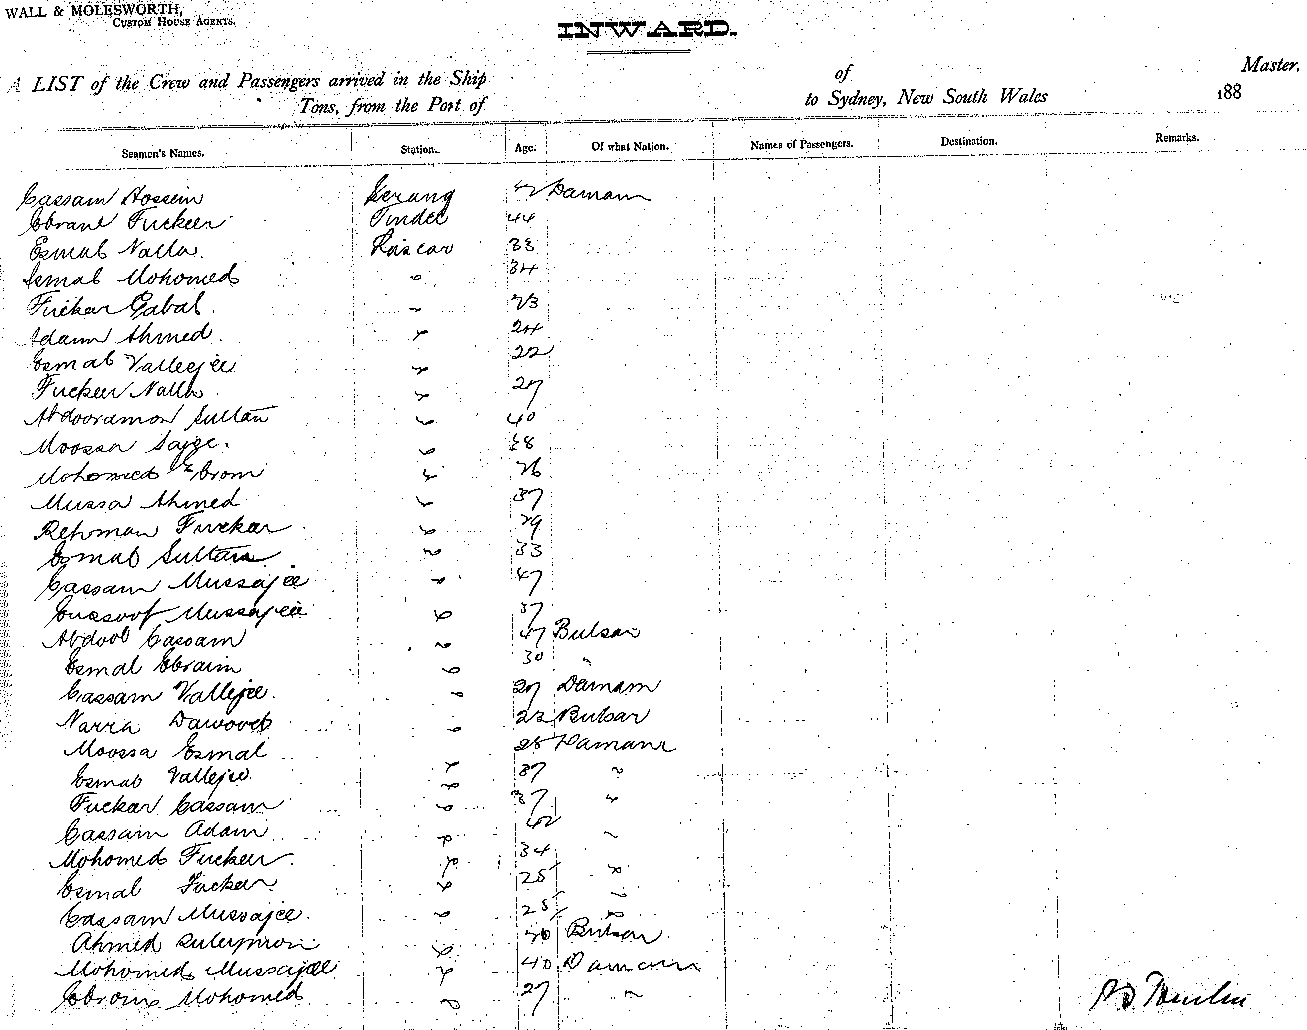 WALL & MOLESWORTH,
CUSTOM HOUSE AGENTS.
INWARD.
A LIST of the Crew and Passengers arrived in the Ship of Master,
Tons, from the Port of to Sydney, New South Wales 188
Seamen's Names. Station. Age. Of what Nation. Names of Passengers. Destination. Remarks.
Cassam Hossein Serang 42 Damam
Ebram Fuckeer Tindel 44
Esmal Nalla. Lascar 33
Esmal Mohomed " 34
Fuckar Gabal. " 23
Adam Ahmed. " 24
Esmal Vallejee " 22
Fuckeer Nalla " 27
Abdooramon Sultan " 40
Moossa " 38
Mohomed Ebrom " 26
Mussa Ahmed " 37
Rehman Fuckar " 29
Esmal Sultan " 33
Cassam Mussajee " 47
Eussoof Mussajee " 37
Abdool Cassam " 47 Bulsar
Esmal Ebraim " 30 "
Cassam Vallejee " 27 Damam
Narra Dawood " 22 Bulsar
Moossa Esmal " 25 Damam
Esmal Vallejee " 37 "
Fuckar Cassam " 37 "
Cassam Adam " 42 "
Mohomed Fuckeer " 34 "
Esmal Fuckeer " 25 "
Cassam Mussajee. " 25 "
Ahmed Suleymon " 40 Bulsar
Mohomed Mussajee " 40 Damam
Ebrom Mohomed " 27 "